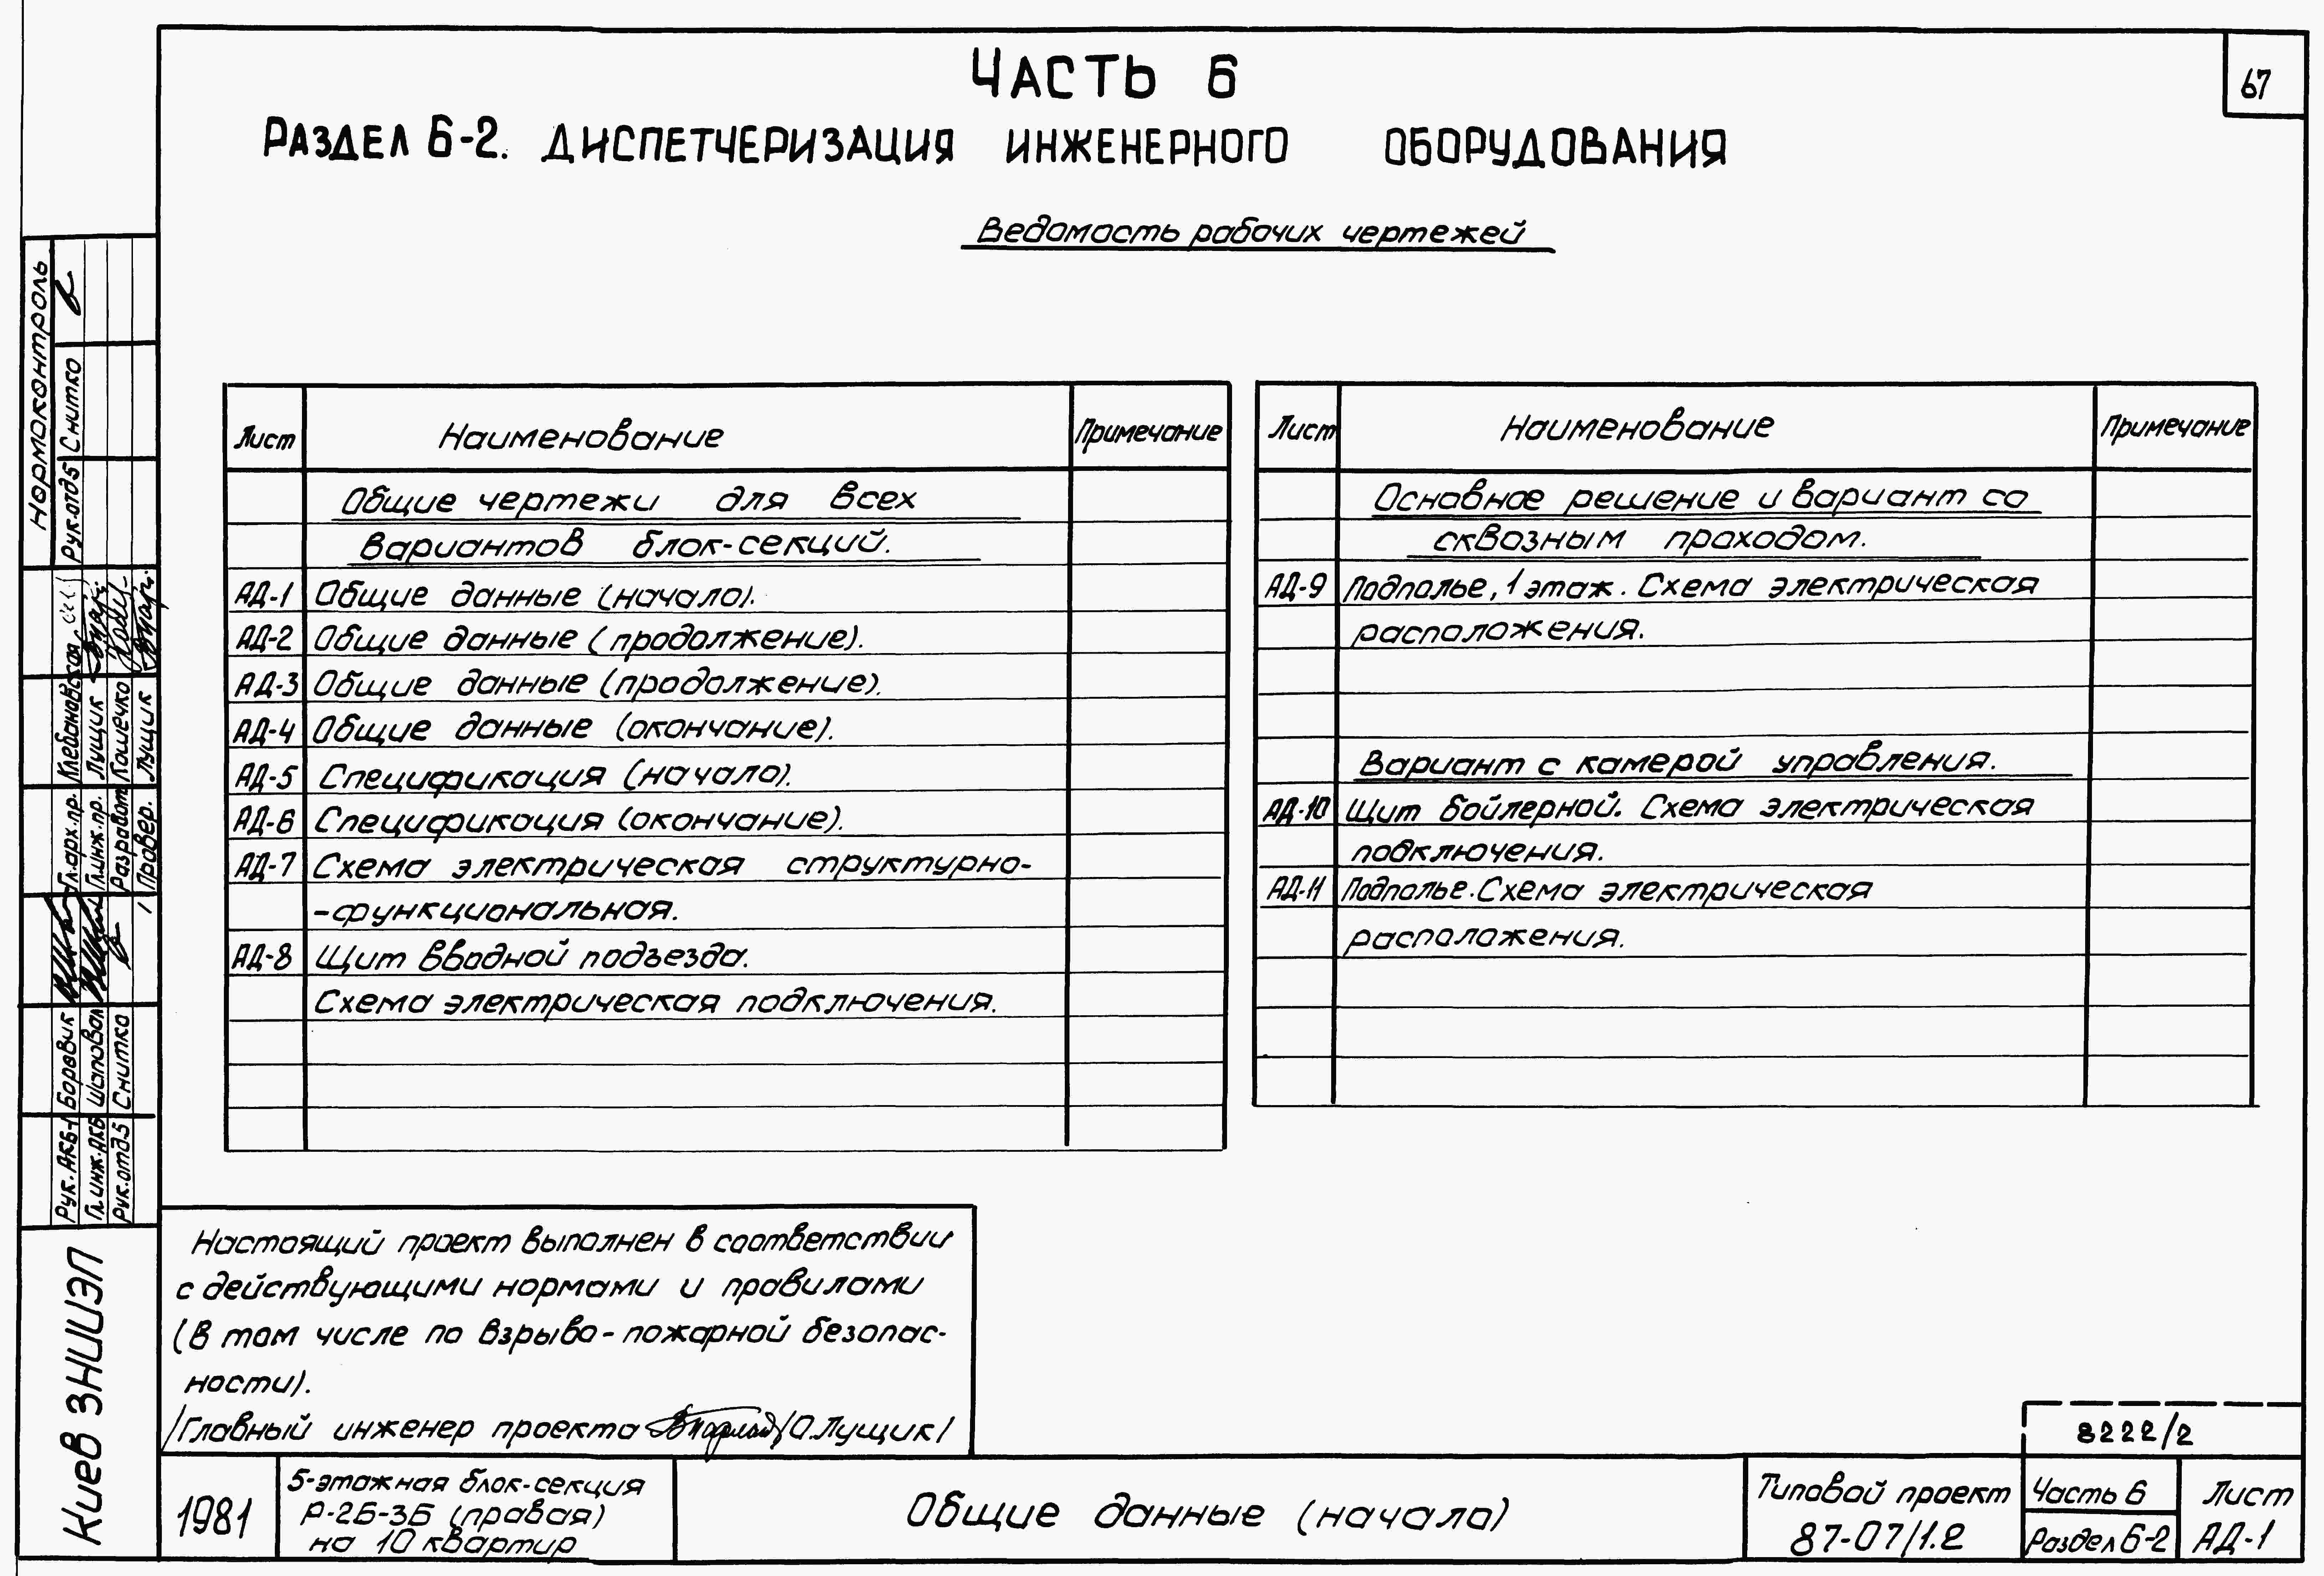 67
ЧАСТЬ 6
РАЗДЕЛ 6-2. ДИСПЕТЧЕРИЗАЦИЯ ИНЖЕНЕРНОГО ОБОРУДОВАНИЯ
Ведомость рабочих чертежей
Лист Наименование Примечание
Общие чертежи для всех
вариантов блок-секций.
АД-1 Общие данные (начало).
АД-2 Общие данные (продолжение).
АД-3 Общие данные (продолжение).
АД-4 Общие данные (окончание).
АД-5 Спецификация (начало).
АД-6 Спецификация (окончание).
АД-7 Схема электрическая структурно-
-функциональная.
АД-8 Щит вводной подъезда.
Схема электрическая подключения.
Лист Наименование Примечание
Основное решение и вариант со
сквозным проходом.
АД-9 Подполье, 1 этаж. Схема электрическая
расположения.
Вариант с камерой управления.
АД-10 Щит бойлерной. Схема электрическая
подключения.
АД-11 Подполье. Схема электрическая
расположения.
Настоящий проект выполнен в соответствии
с действующими нормами и правилами
(в том числе по взрыво-пожарной безопас-
ности).
/Главный инженер проекта /О.Лущик/
8222/2
1981
5-этажная блок-секция
Р-2Б-3Б (правая)
на 10 квартир
Общие данные (начало)
Типовой проект
87-07/1.2
Часть 6
Раздел 6-2
Лист
АД-1
Нормоконтроль
Рук.отд5 Снитко
Гл.арх.пр. Клебановская
Гл.инж.пр. Лущик
Разработ Кошечко
Провер. Лущик
Рук. АКБ-1 Боровик
Гл.инж.АКБ Шаповал
Рук.отд5 Снитко
Киев ЗНИИЭП